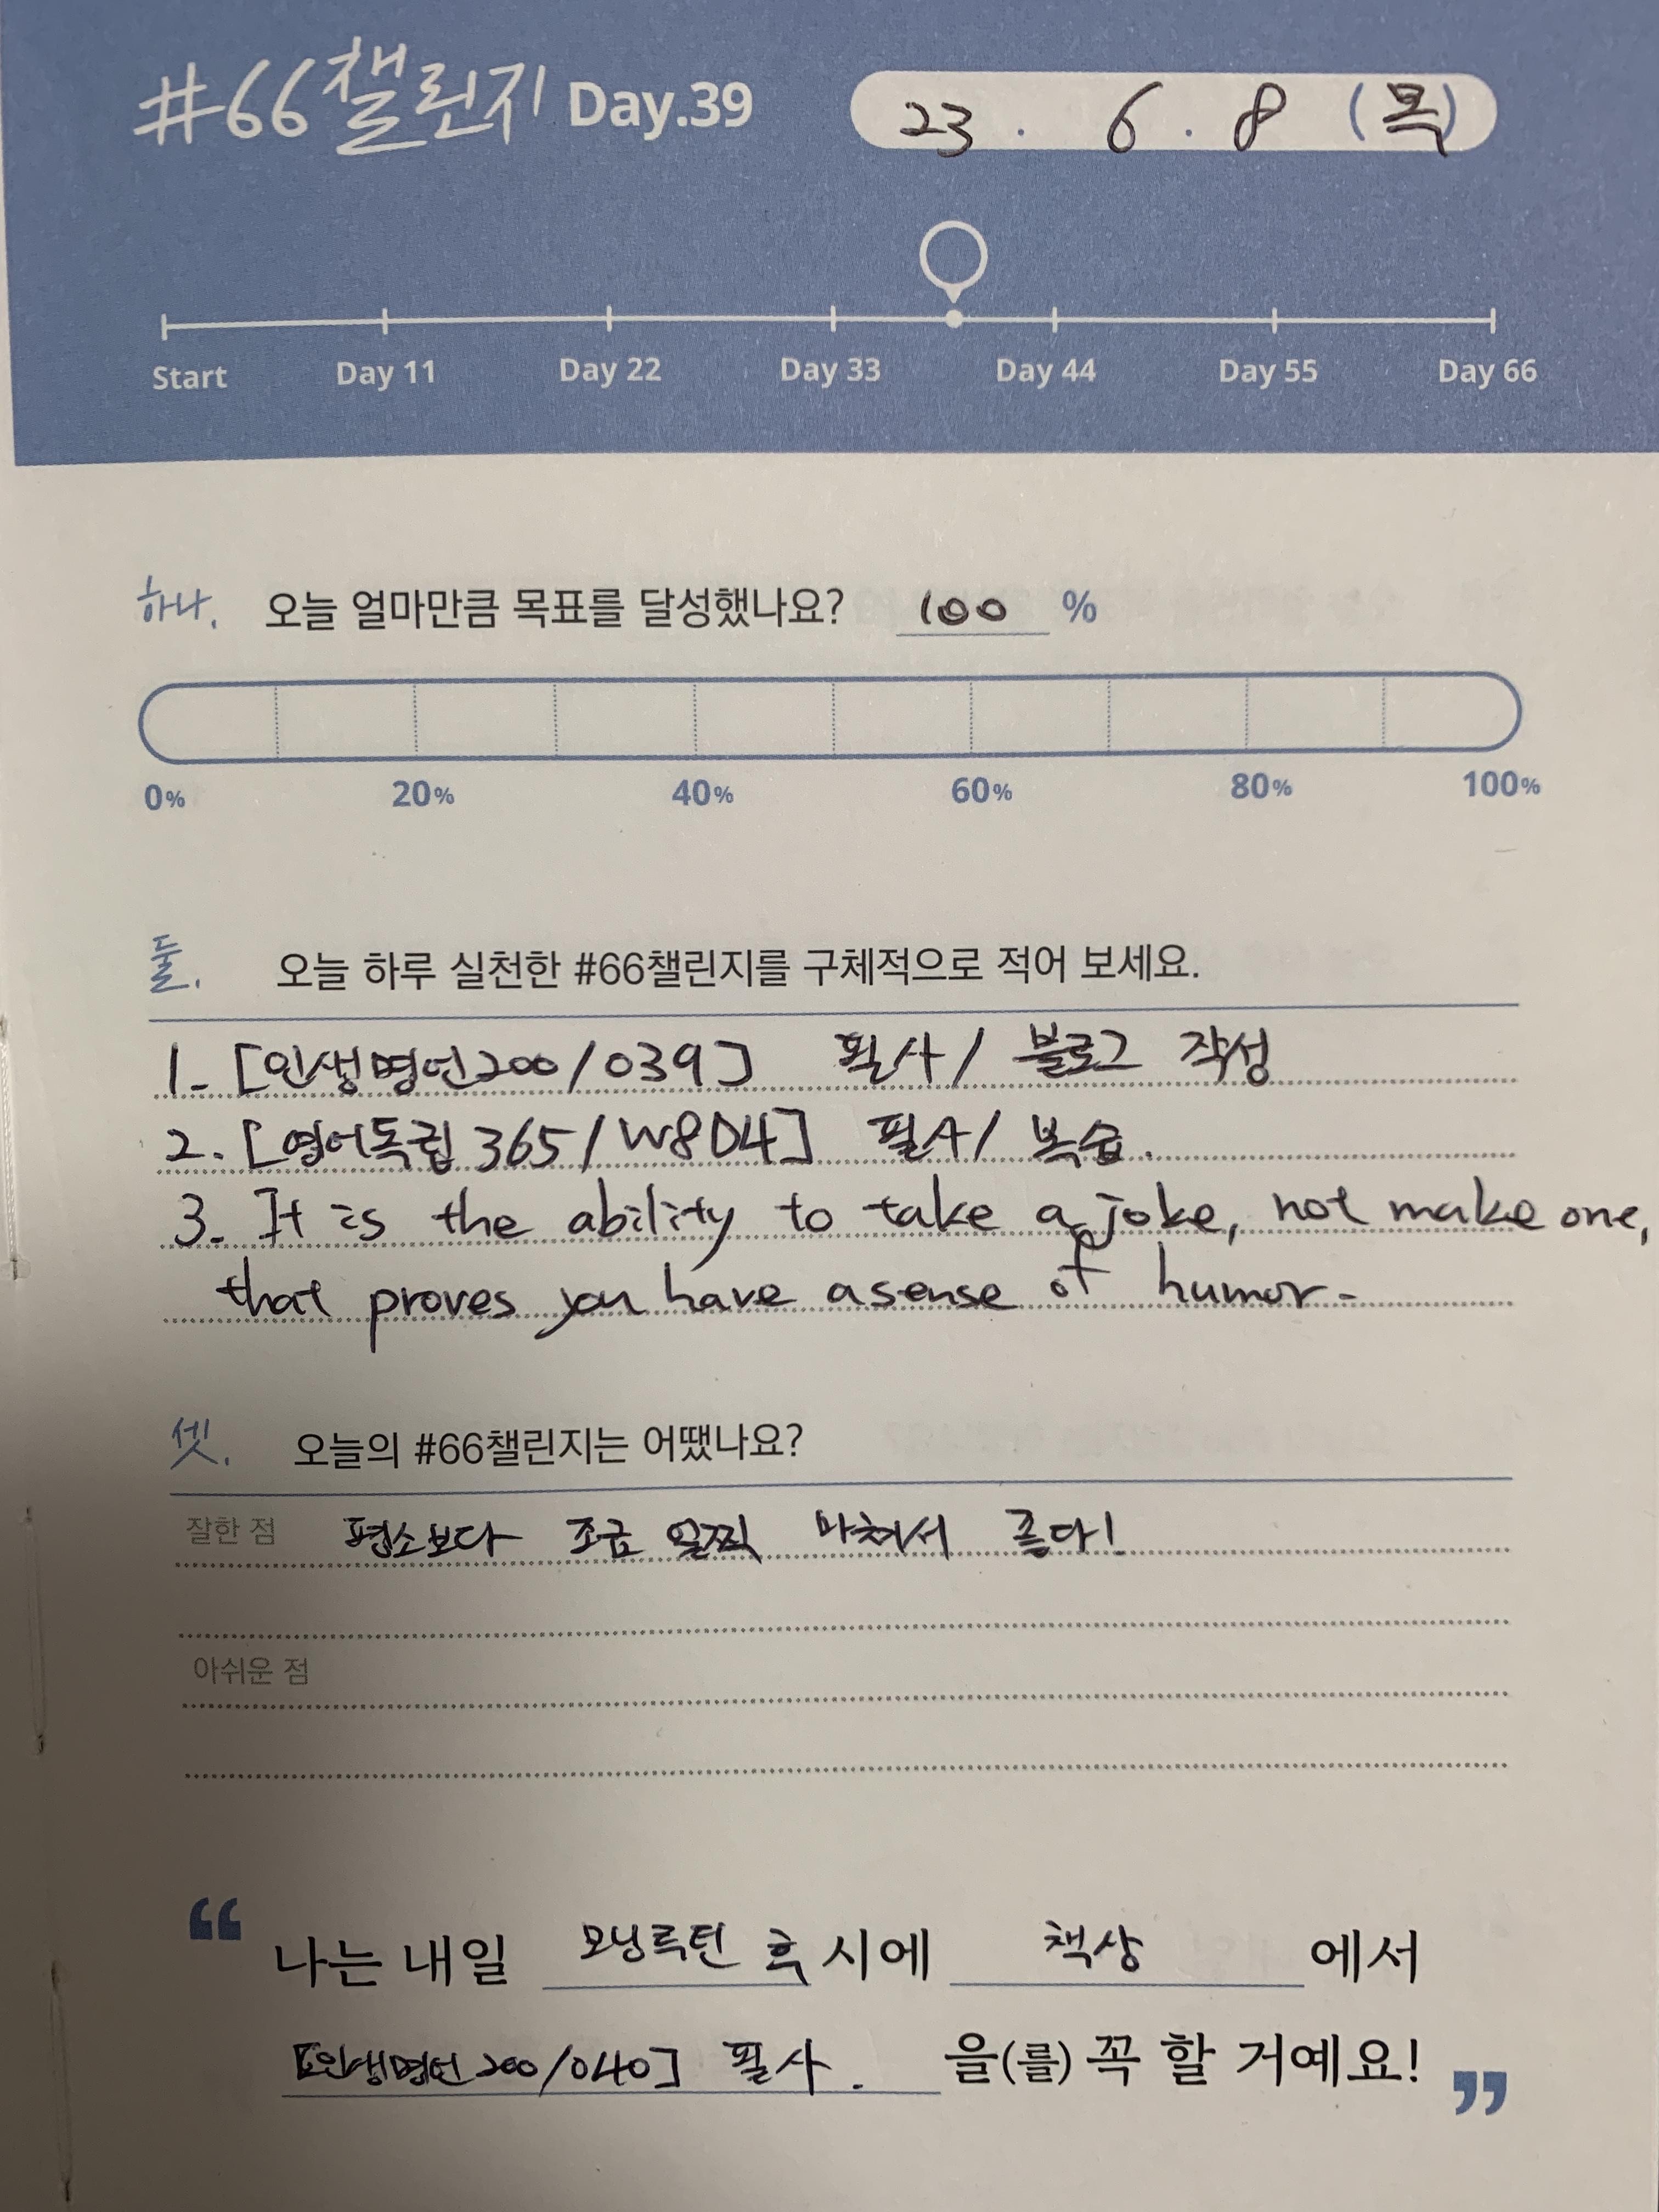 #66챌린지 Day.39 23. 6. 8 (목)
Start Day 11 Day 22 Day 33 Day 44 Day 55 Day 66
하나. 오늘 얼마만큼 목표를 달성했나요? 100 %
0% 20% 40% 60% 80% 100%
둘. 오늘 하루 실천한 #66챌린지를 구체적으로 적어 보세요.
1. [인생명언200/039] 필사/ 블로그 작성
2. [영어독립 365/W8D4] 필사/ 복습.
3. It is the ability to take a joke, not make one,
that proves you have a sense of humor.
셋. 오늘의 #66챌린지는 어땠나요?
잘한 점 평소보다 조금 일찍 마쳐서 좋다!
아쉬운 점
“ 나는 내일 모닝루틴 후 시에 책상 에서
[인생명언 200/040] 필사. 을(를) 꼭 할 거예요! ”